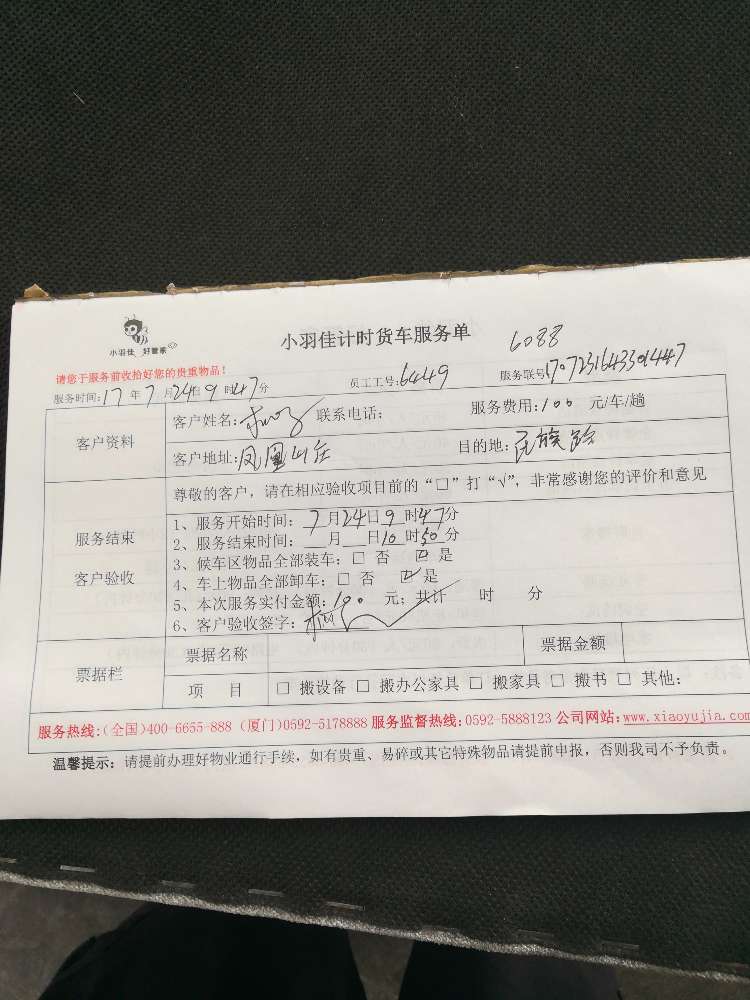 小羽佳 好管家
小羽佳计时货车服务单
6088
请您于服务前收拾好您的贵重物品！
服务时间：17 年 7 月 24 日 9 时 47 分 员工工号：6449 服务联号
客户资料
客户姓名： 联系电话： 服务费用：100 元/车/趟
客户地址：凤凰山庄 目的地：民族路
服务结束
客户验收
尊敬的客户，请在相应验收项目前的“□”打“√”，非常感谢您的评价和意见
1、服务开始时间：7 月 24 日 9 时 47 分
2、服务结束时间： 月 日 10 时 50 分
3、候车区物品全部装车：□ 否 ☑ 是
4、车上物品全部卸车：□ 否 ☑ 是
5、本次服务实付金额：100 元；共计 时 分
6、客户验收签字：
票据栏
票据名称 票据金额
项 目 □ 搬设备 □ 搬办公家具 □ 搬家具 □ 搬书 □ 其他：
服务热线：(全国)400-6655-888 (厦门)0592-5178888 服务监督热线：0592-5888123 公司网站：www.xiaoyujia.com
温馨提示：请提前办理好物业通行手续，如有贵重、易碎或其它特殊物品请提前申报，否则我司不予负责。